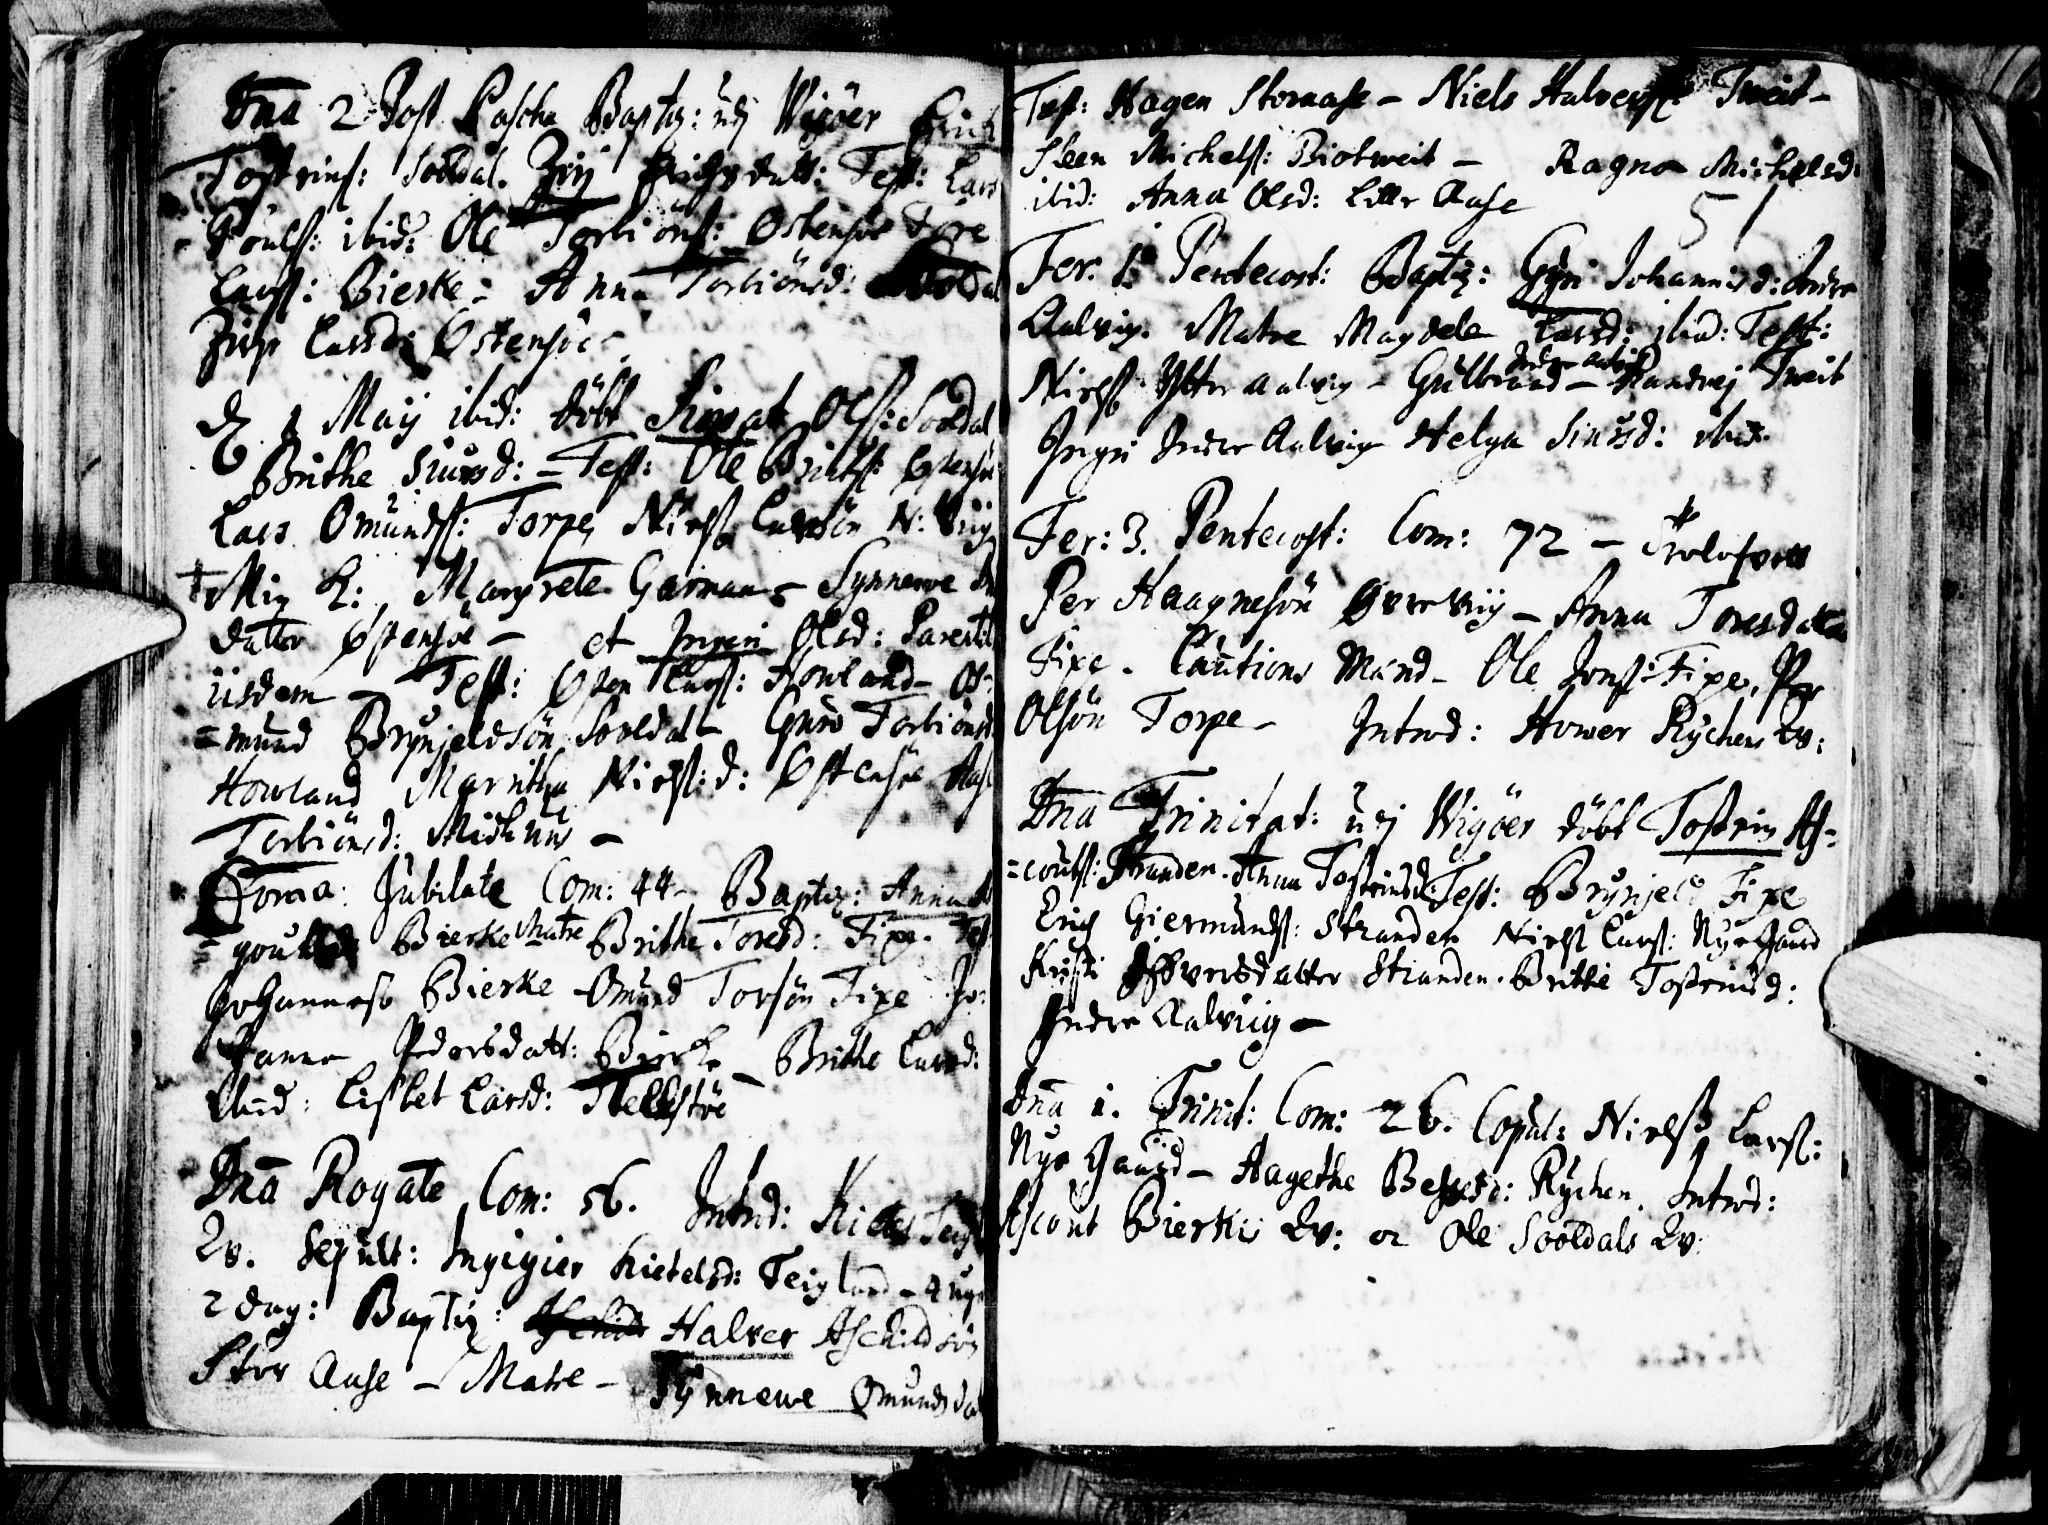 Dnā 2 Post Pascha Baptiz: udj Wigöer Erich
Tostens: Sooldal. Zirj Erichsdatt: Test: Lars
Poulss: ibid: Ole Torbiörnss: Ostensöe Tore
Larss: Bierke - Anna Torbiönsd: Sooldal
Zirj Larsd: Ostensöe
D 1 Maij ibid: döbt Olss: Sooldal
Brithe Siursd: - Test: Ole Ostensöe
Lars Omundss: Torpe, Nielss Larsön N: Wiig
Min K: Margrete Garman - Synnewe
datter Østensöe - et Ingeri Olsd: Parentib
iisdem - Test: Østen Larss: Howland - Os-
=mund Brynjeldsön Sooldal - Guro Torbiönsd
Howland Maritha Nielss: d: Østensöe Aase
Torbiönsd: Midhuus -
Doma: Jubilate Com: 44 - Baptiz: Anna
=gouts Bierke Matre Brithe Toresd: Fixe. Test
Johanness Bierke - Omund Torsön Fixe Jo:
hanne Pedersdatt: Bierke - Brithe Larsd:
ibid: Lisbet Larsd: Stellstöe
Dnā Rogate Com: 56. Introd: Teigl
Qv. Sepult: Ingigier Kietelsd: Teigland - 4 uger
2 dag: Baptiz: Halver Aschildsön
Stor Aase - Matre - Synnewe Omundsdat
Test: Hagen Storaase - Niels Halverss: Tweit -
Steen Michelss: Biotweit - Ragna Michelsd:
ibid: Anna Olsd: Lille Aase
51
Fer. 1 Pentecost: Baptiz: Gyri Johannisd: Indre
Aalvig. Matre Magdela Larsd: ibid: Test:
Nielss Ytter Aalvig - Gulbrand Indre Aalvig - Randvej Tweit
Ingri Indre Aalvig Helga Siursd: ibid.
Fer: 3. Pentecost: Com: 72 - Trolofvett
Per Haagnesön Øvre Wiig - Anna Toresdatter
Fixe. Cautions Mänd - Ole Jonss: Fixe, Per
Olsön Torpe - Introd: Hower Rychens Qv:
Dnā Trinitat: udj Wigöer döbt Tosten As-
=coutss: Stranden. Anna Tostensd: Test: Brynjeld Fixe
Erich Giermundss: Stranden Nielss Larss: Nye Gaard
Kristi Stranden. Britte Tostensd:
Indre Aalviig -
Dnā 1. Trinit: Com: 26. Copul: Nielss Larss:
Nye Gaard - Aagethe Rychen. Introd:
Ascout Bierkis Qv: oc Ole Sooldals Qv: